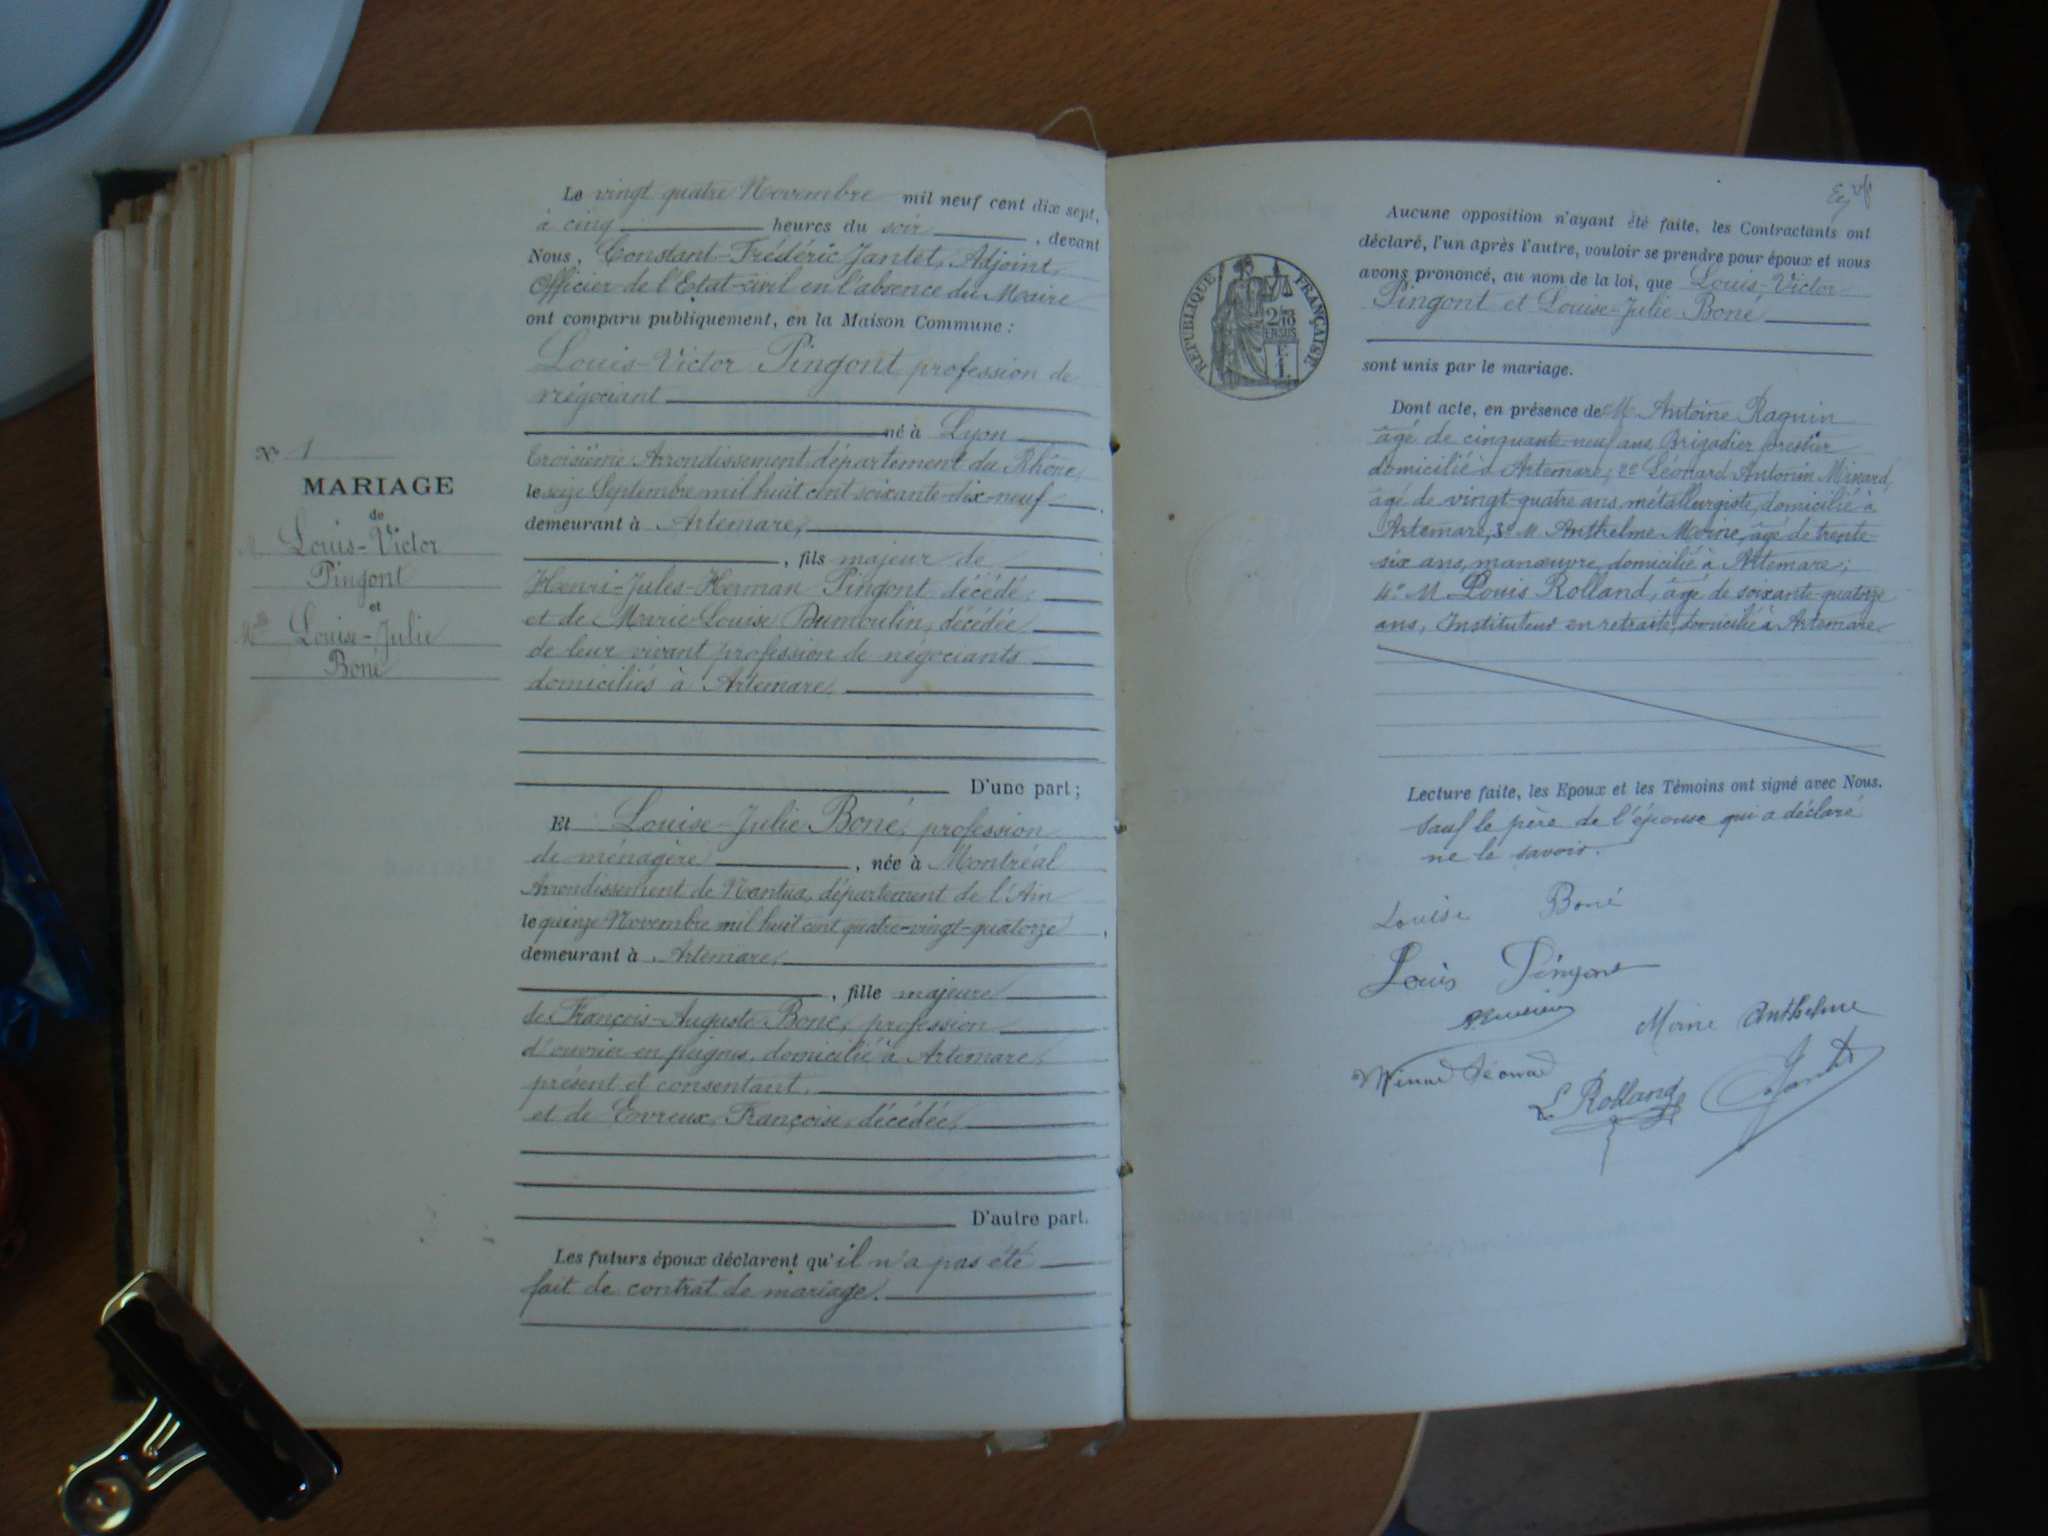 Nº 1
MARIAGE
de
M. Louis-Victor
Pingont
et
Mlle Louise-Julie
Boné
Le vingt quatre Novembre mil neuf cent dix sept,
à cinq heures du soir, devant
Nous, Constant-Frédéric Jantet, Adjoint,
Officier de l'Etat-civil en l'absence du Maire
ont comparu publiquement, en la Maison Commune :
Louis-Victor Pingont profession de
négociant
né à Lyon
Troisième Arrondissement, département du Rhône,
le seize Septembre mil huit cent soixante-dix-neuf,
demeurant à Artemare,
, fils majeur de
Henri-Jules-Herman Pingont, décédé,
et de Marie-Louise Dumoulin, décédée
de leur vivant profession de négociants
domiciliés à Artemare,
D'une part ;
Et Louise-Julie Boné, profession
de ménagère, née à Montréal
Arrondissement de Nantua, département de l'Ain
le quinze Novembre mil huit cent quatre-vingt-quatorze,
demeurant à Artemare,
, fille majeure
de François-Auguste Boné, profession
d'ouvrier en peignes, domicilié à Artemare,
présent et consentant,
et de Evreux, Françoise, décédée,
D'autre part.
Les futurs époux déclarent qu'il n'a pas été
fait de contrat de mariage.
RÉPUBLIQUE FRANÇAISE
2/10 EN SUS
Aucune opposition n'ayant été faite, les Contractants ont
déclaré, l'un après l'autre, vouloir se prendre pour époux et nous
avons prononcé, au nom de la loi, que Louis-Victor
Pingont et Louise-Julie Boné
sont unis par le mariage.
Dont acte, en présence de M. Antoine Raguin
âgé de cinquante-neuf ans, Brigadier forestier
domicilié à Artemare; 2º Léonard Antonin Minard,
âgé de vingt-quatre ans, métallurgiste, domicilié à
Artemare, 3º M. Anthelme Moine, âgé de trente-
six ans, manœuvre, domicilié à Artemare;
4º M. Louis Rolland, âgé de soixante-quatorze
ans, Instituteur en retraite, domicilié à Artemare.
Lecture faite, les Epoux et les Témoins ont signé avec Nous.
Sauf le père de l'épouse qui a déclaré
ne le savoir.
Louise Boné
Louis Pingont
Moine Anthelme
Minard Léonard
L. Rolland
Jantet